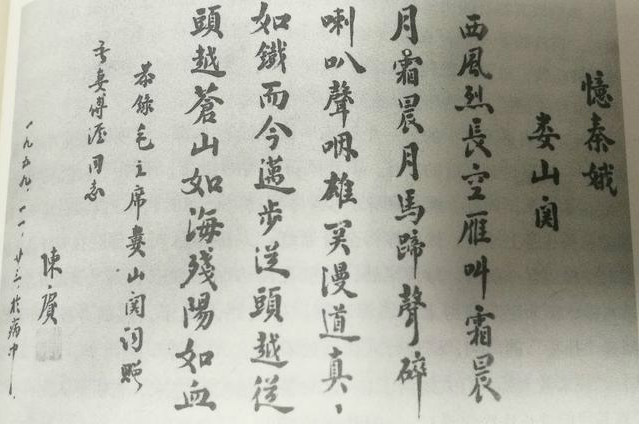 憶秦娥
娄山関
西風烈長空雁叫霜晨
月霜晨月馬蹄聲碎
喇叭聲咽雄関漫道真、
如鐵而今邁步從頭越從
頭越蒼山如海殘陽如血
恭錄毛主席婁山関詞贈
吾妻傅涯同志
陳賡
一九五九.一一.廿三.於病中.